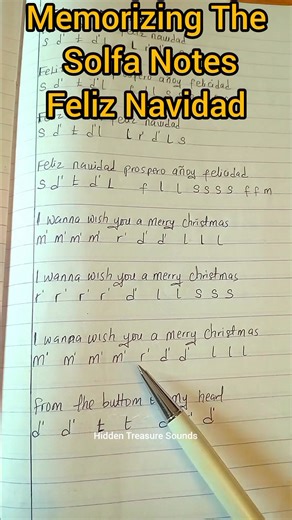 Memorizing The
Solfa Notes
Feliz Navidad
Feliz navidad
s d' t d' l
Feliz prospero añoy felicidad
navidad
s d' t d' l l r' d' l s
Feliz navidad prospero añoy felicidad
s d' t d' L f l l s s s s f f m
I wanna wish you a merry christmas
m' m' m' m' r' d' d' l l l
I wanna wish you a merry christmas
r' r' r' r' d' l l s s s
I wanna wish you a merry christmas
m' m' m' m' r' d' d' l l l
from the buttom my head
d' d' t t d' d'
Hidden Treasure Sounds